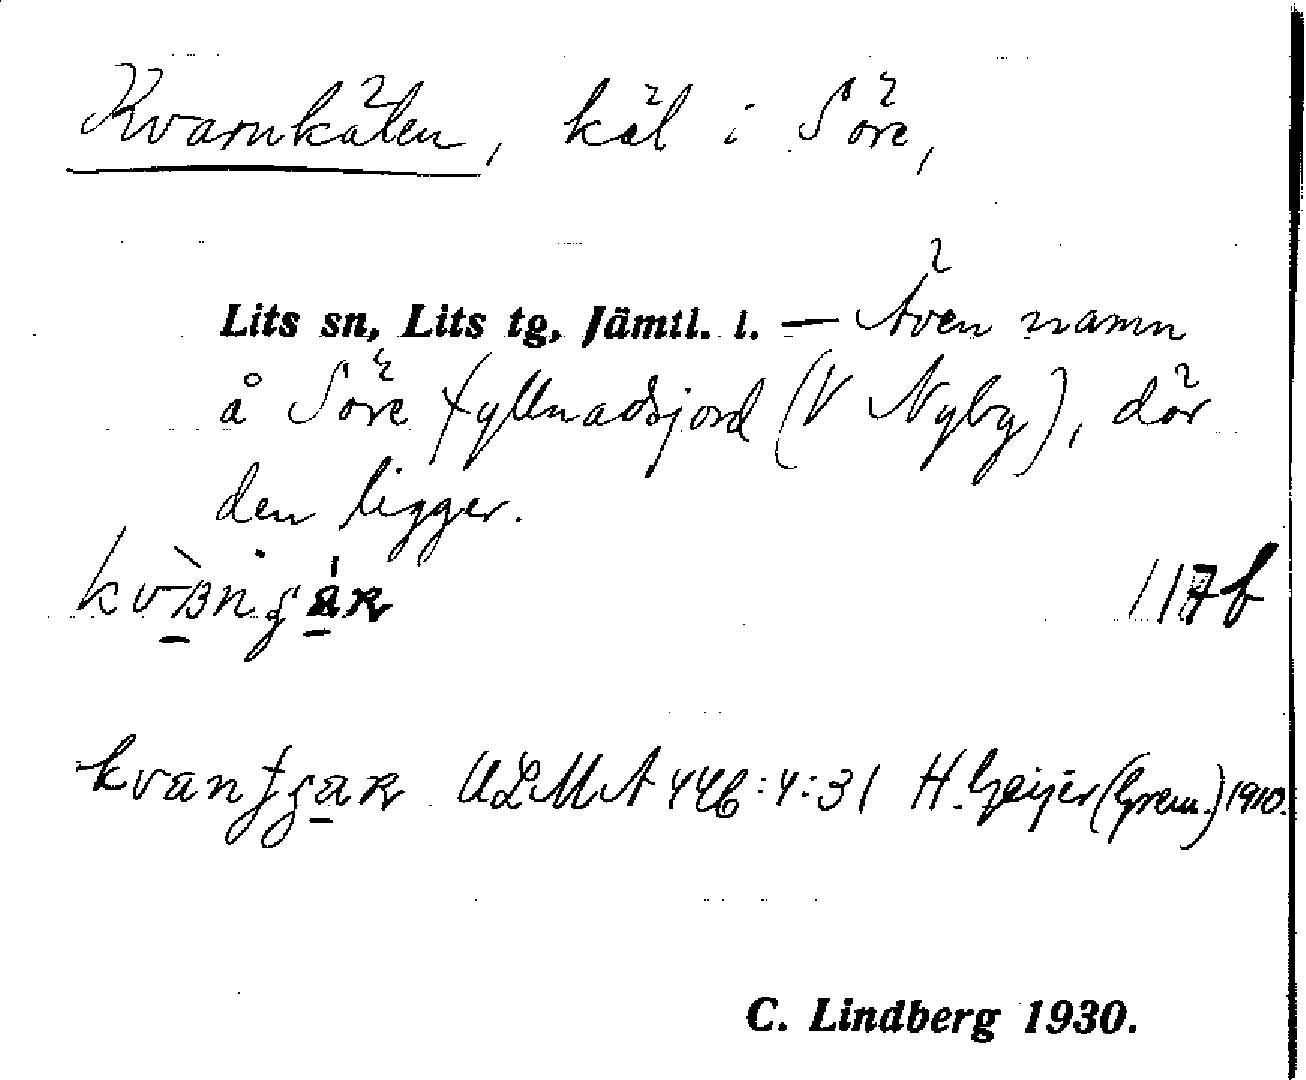 Kvarnkälen, käl i Söre,
Lits sn, Lits tg, Jämtl. l. — Även namn
å Söre fyllnadsjord (V Nyby), där
den ligger.
117b
ULMA 446:4:31 H. Geijer (Grem.) 1910.
C. Lindberg 1930.